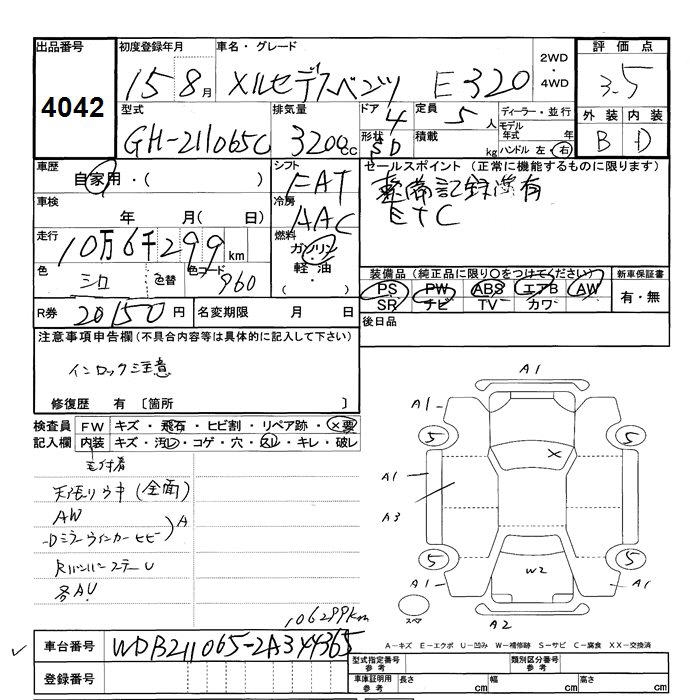 出品番号 初度登録年月 車名・グレード 2WD ・ 4WD 評価点
4042 15 8月 メルセデスベンツ E320 3.5
型式 排気量 ドア 4 定員 5人 ディーラー・並行 外装 内装
GH-211065C 3200cc 形状 SD 積載 kg モデル年式 年 B D
ハンドル 左・右
車歴 シフト セールスポイント(正常に機能するものに限ります)
自家用・( ) FAT 整備記録簿有
車検 冷房 ETC
年 月( 日) AAC
走行 燃料
10万6千299km ガソリン・軽油・( )
色 シロ 色替 色コード 960 装備品(純正品に限り○をつけてください) 新車保証書
PS PW ABS エアB AW 有・無
SR ナビ TV カワ
R券 20150円 名変期限 月 日 後日品
注意事項申告欄(不具合内容等は具体的に記入して下さい)
インロック注意
修復歴 有〔箇所 〕
検査員 FW キズ・飛石・ヒビ割・リペア跡・×要
記入欄 内装 キズ・汚れ・コゲ・穴・スレ・キレ・破レ
毛付着
(全面)
AW
ミラーウインカーヒビ A
各AU
106299km
A1
A1
5 5
A1
A3
X
5 5
W2
A1 A1
A2
スペア
車台番号 WDB211065-2A344365
登録番号
A-キズ E-エクボ U-凹み W-補修跡 S-サビ C-腐食 XX-交換済
型式指定番号 参考 類別区分番号 参考
車庫証明用 参考 長さ cm 幅 cm 高さ cm